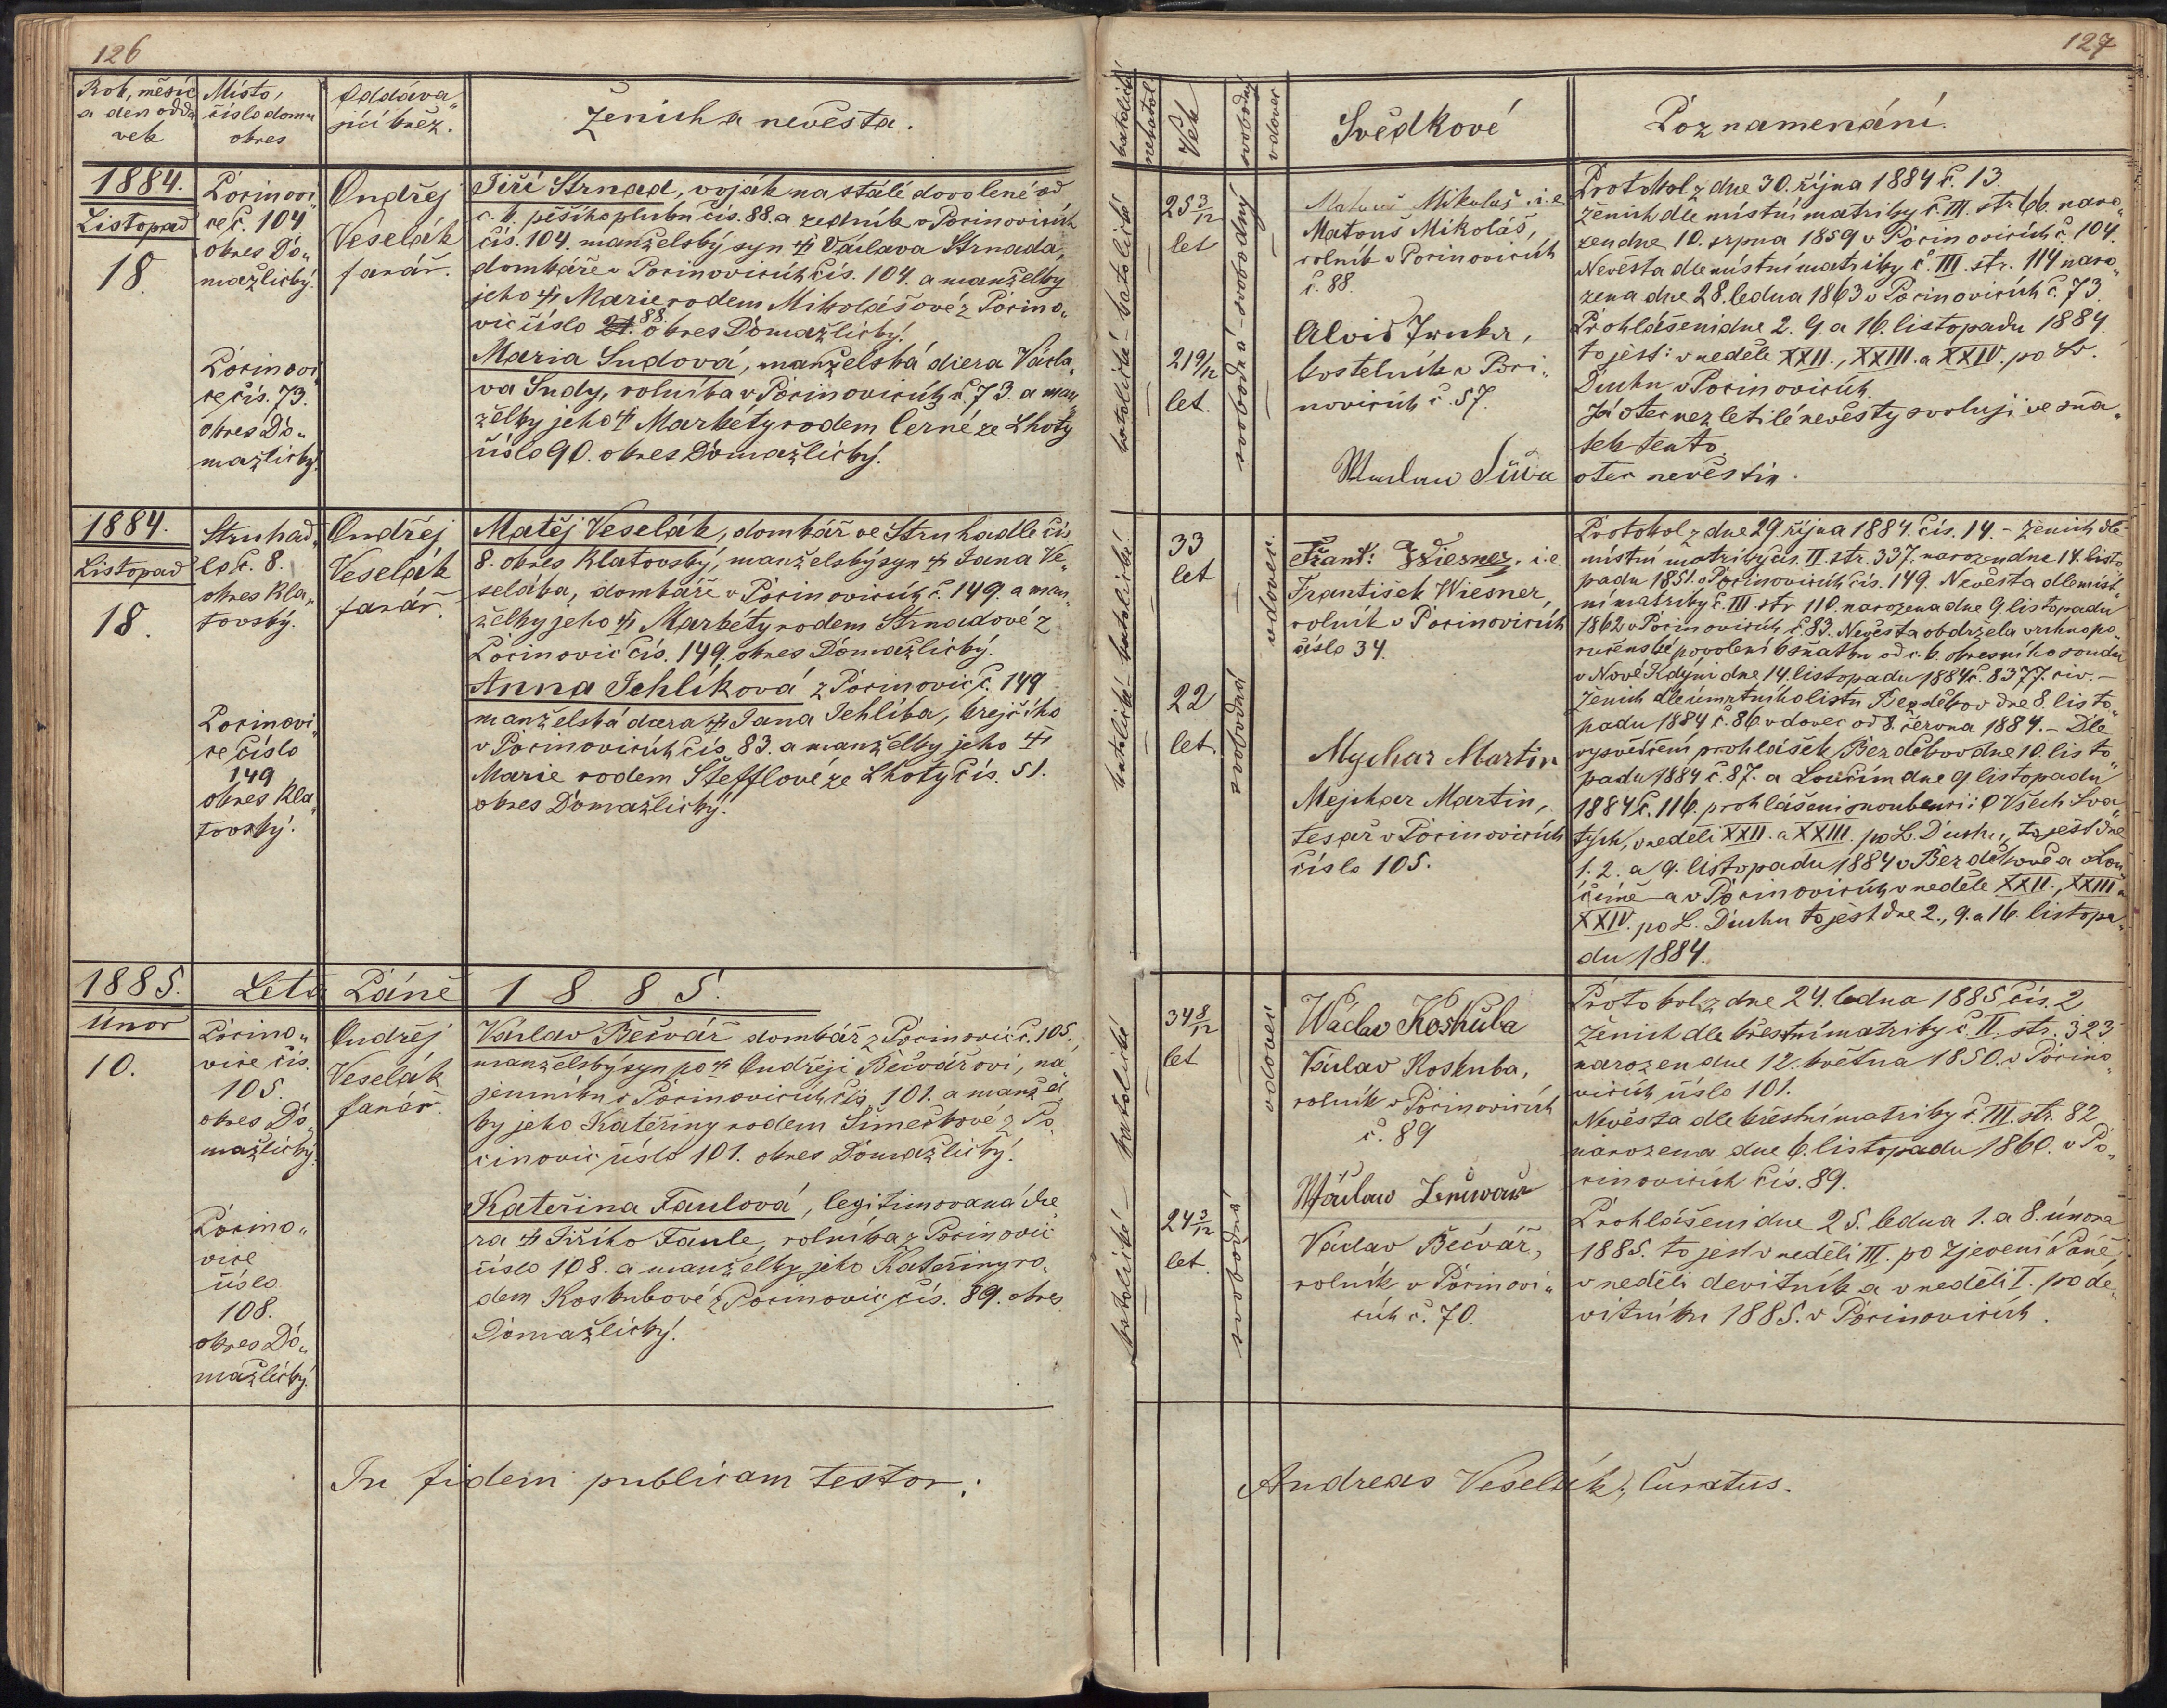 126
Rok, měsíc
a den odda
vek
Místo,
číslo domu
okres
Oddáva„
jící kněz.
Ženich a nevěsta.
1884.
Listopad
18.
Pocinovi„
ce č. 104
okres Do„
mažlický.
Pocinovi„
ce čís. 73.
okres Do„
mažlický.
Ondřej
Veselák
farář.
Jiří Strnad, voják na stálé dovolené od
c. k. pěšího pluku čís. 88. a zedník v Pocinovicích
čís. 104. manželský syn † Václava Strnada,
domkáře v Pocinovicích čís. 104. a manželky
jeho † Marie rodem Mikolášové z Pocino„
vic číslo 88. okres Domažlický.
Maria Sudová, manželská dcera Václa„
va Sudy, rolníka v Pocinovicích č. 73. a man„
želky jeho † Markéty rodem Černé ze Lhoty
číslo 90. okres Domažlický.
1884.
Listopad
18.
Struhad„
lo č. 8.
okres Kla„
tovský.
Pocinovi„
ce číslo
149
okres Kla„
tovský.
Ondřej
Veselák
farář.
Matěj Veselák, domkář ve Struhadle čís.
8. okres Klatovský, manželský syn † Jana Ve„
seláka, domkáře v Pocinovicích č. 149. a man„
želky jeho † Markéty rodem Strnadové z
Pocinovic čís. 149. okres Domažlický.
Anna Jehlíková z Pocinovic č. 149
manželská dcera † Jana Jehlíka, krejčího
v Pocinovicích čís. 83. a manželky jeho †
Marie rodem Štefflové ze Lhoty čís. 51.
okres Domažlický.
1885. Léta Páně 1885.
Únor
10.
Pocino„
vice čís.
105.
okres Do„
mažlický.
Pocino„
vice
číslo
108.
okres Do„
mažlický.
Ondřej
Veselák
farář.
Václav Bečvář domkář z Pocinovic č. 105.,
manželský syn po † Ondřeji Bečvářovi, ná„
jemníku v Pocinovicích čís. 101. a manžel„
ky jeho Kateřiny rodem Šimečkové z Po„
cinovic číslo 101. okres Domažlický.
Kateřina Faulová, legitimovaná dce„
ra † Jiřího Faule, rolníka z Pocinovic
číslo 108. a manželky jeho Kateřiny ro„
dem Koskubové z Pocinovic čís. 89. okres
Domažlický.
In fidem publicam testor:
127
katolické
nekatol.
Věk
svobodný
vdovec
Svědkové
Poznamenání.
katolické – katolické
25 3/12
let
21 9/12
let.
svobodná – svobodný
Matouš Mikolaš, i.e.
Matouš Mikoláš,
rolník v Pocinovicích
č. 88.
Alois
kostelník v Poci„
novicích č. 57.
Protokol z dne 30. října 1884 č. 13.
Ženich dle místní matriky č. III. str. 66. naro„
zen dne 10. srpna 1859 v Pocinovicích č. 104.
Nevěsta dle místní matriky č. III. str. 114 naro„
zena dne 28. ledna 1863 v Pocinovicích č. 73.
Prohlášeni dne 2. 9. a 16. listopadu 1884.
to jest: v neděle XXII., XXIII. a XXIV. po Sv.
Duchu v Pocinovicích.
Já otec nezletilé nevěsty svoluji ve sňa„
tek tento.
otec nevěstin.
katolické – katolické
33
let
22
let.
vdovec
svobodná
Frant: Wiesner, i.e.
František Wiesner,
rolník v Pocinovicích
číslo 34.
Mychar Martin
Mejchar Martin,
tesař v Pocinovicích
číslo 105.
Protokol z dne 29. října 1884. čís. 14. – Ženich dle
místní matriky čís. II. str. 337. narozen dne 14. listo„
padu 1851. v Pocinovicích čís. 149. Nevěsta dle míst„
ní matriky č. III. str. 110. narozena dne 9. listopadu
1862 v Pocinovicích č. 83. Nevěsta obdržela vrchnopo„
ručenské povolení k sňatku od c. k. okresního soudu
v Nové Kdýni dne 14. listopadu 1884 č. 8377. civ. –
Ženich dle úmrtního listu Bezděkov dne 8. listo„
padu 1884 č. 86 vdovec od 8. června 1884. – Dle
vysvědčení prohlášek Bezděkov dne 10. listo„
padu 1884 č. 87. a Loučim dne 9. listopadu
1884 č. 116. prohlášeni snoubenci: O Všech Sva„
tých, v neděli XXII. a XXIII. po S. Duchu, to jest dne
1. 2. a 9. listopadu 1884 v Bezděkově a v Lou„
čimě – a v Pocinovicích v neděle XXII., XXIII a
XXIV. po S. Duchu to jest dne 2., 9. a 16. listopa„
du 1884.
katolické – katolické
34 8/12
let
24 3/12
let.
vdovec
svobodná
Wáclav Koskuba
Václav Koskuba,
rolník v Pocinovicích
č. 89
Václav Bečvář,
rolník v Pocinovi„
cích č. 70.
Protokol z dne 24. ledna 1885 čís. 2
Ženich dle křestní matriky č. II. str. 323
narozen dne 12. května 1850. v Pocino„
vicích číslo 101.
Nevěsta dle křestní matriky č. III. str. 82
narozena dne 6. listopadu 1860. v Po„
cinovicích čís. 89.
Prohlášeni dne 25. ledna 1. a 8. února
1885. to jest v neděli III. po Zjevení Páně,
v neděli devítník a v neděli I. po de„
vítníku 1885. v Pocinovicích.
Andreas Veselák, Curatus.